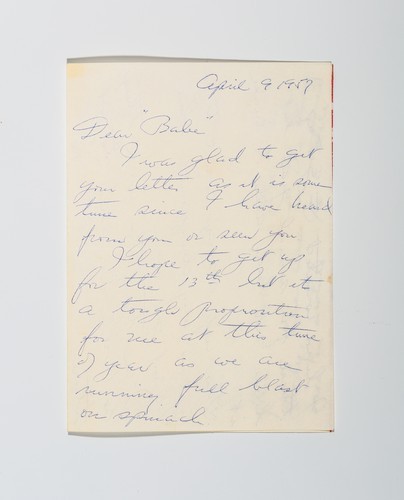 April 9 1957
Dear "Babe"
I was glad to get
your letter as it is some
time since I have heard
from you or seen you
I hope to get up
for the 13th but it
a tough proposition
for me at this time
of year as we are
running full blast
on spinach